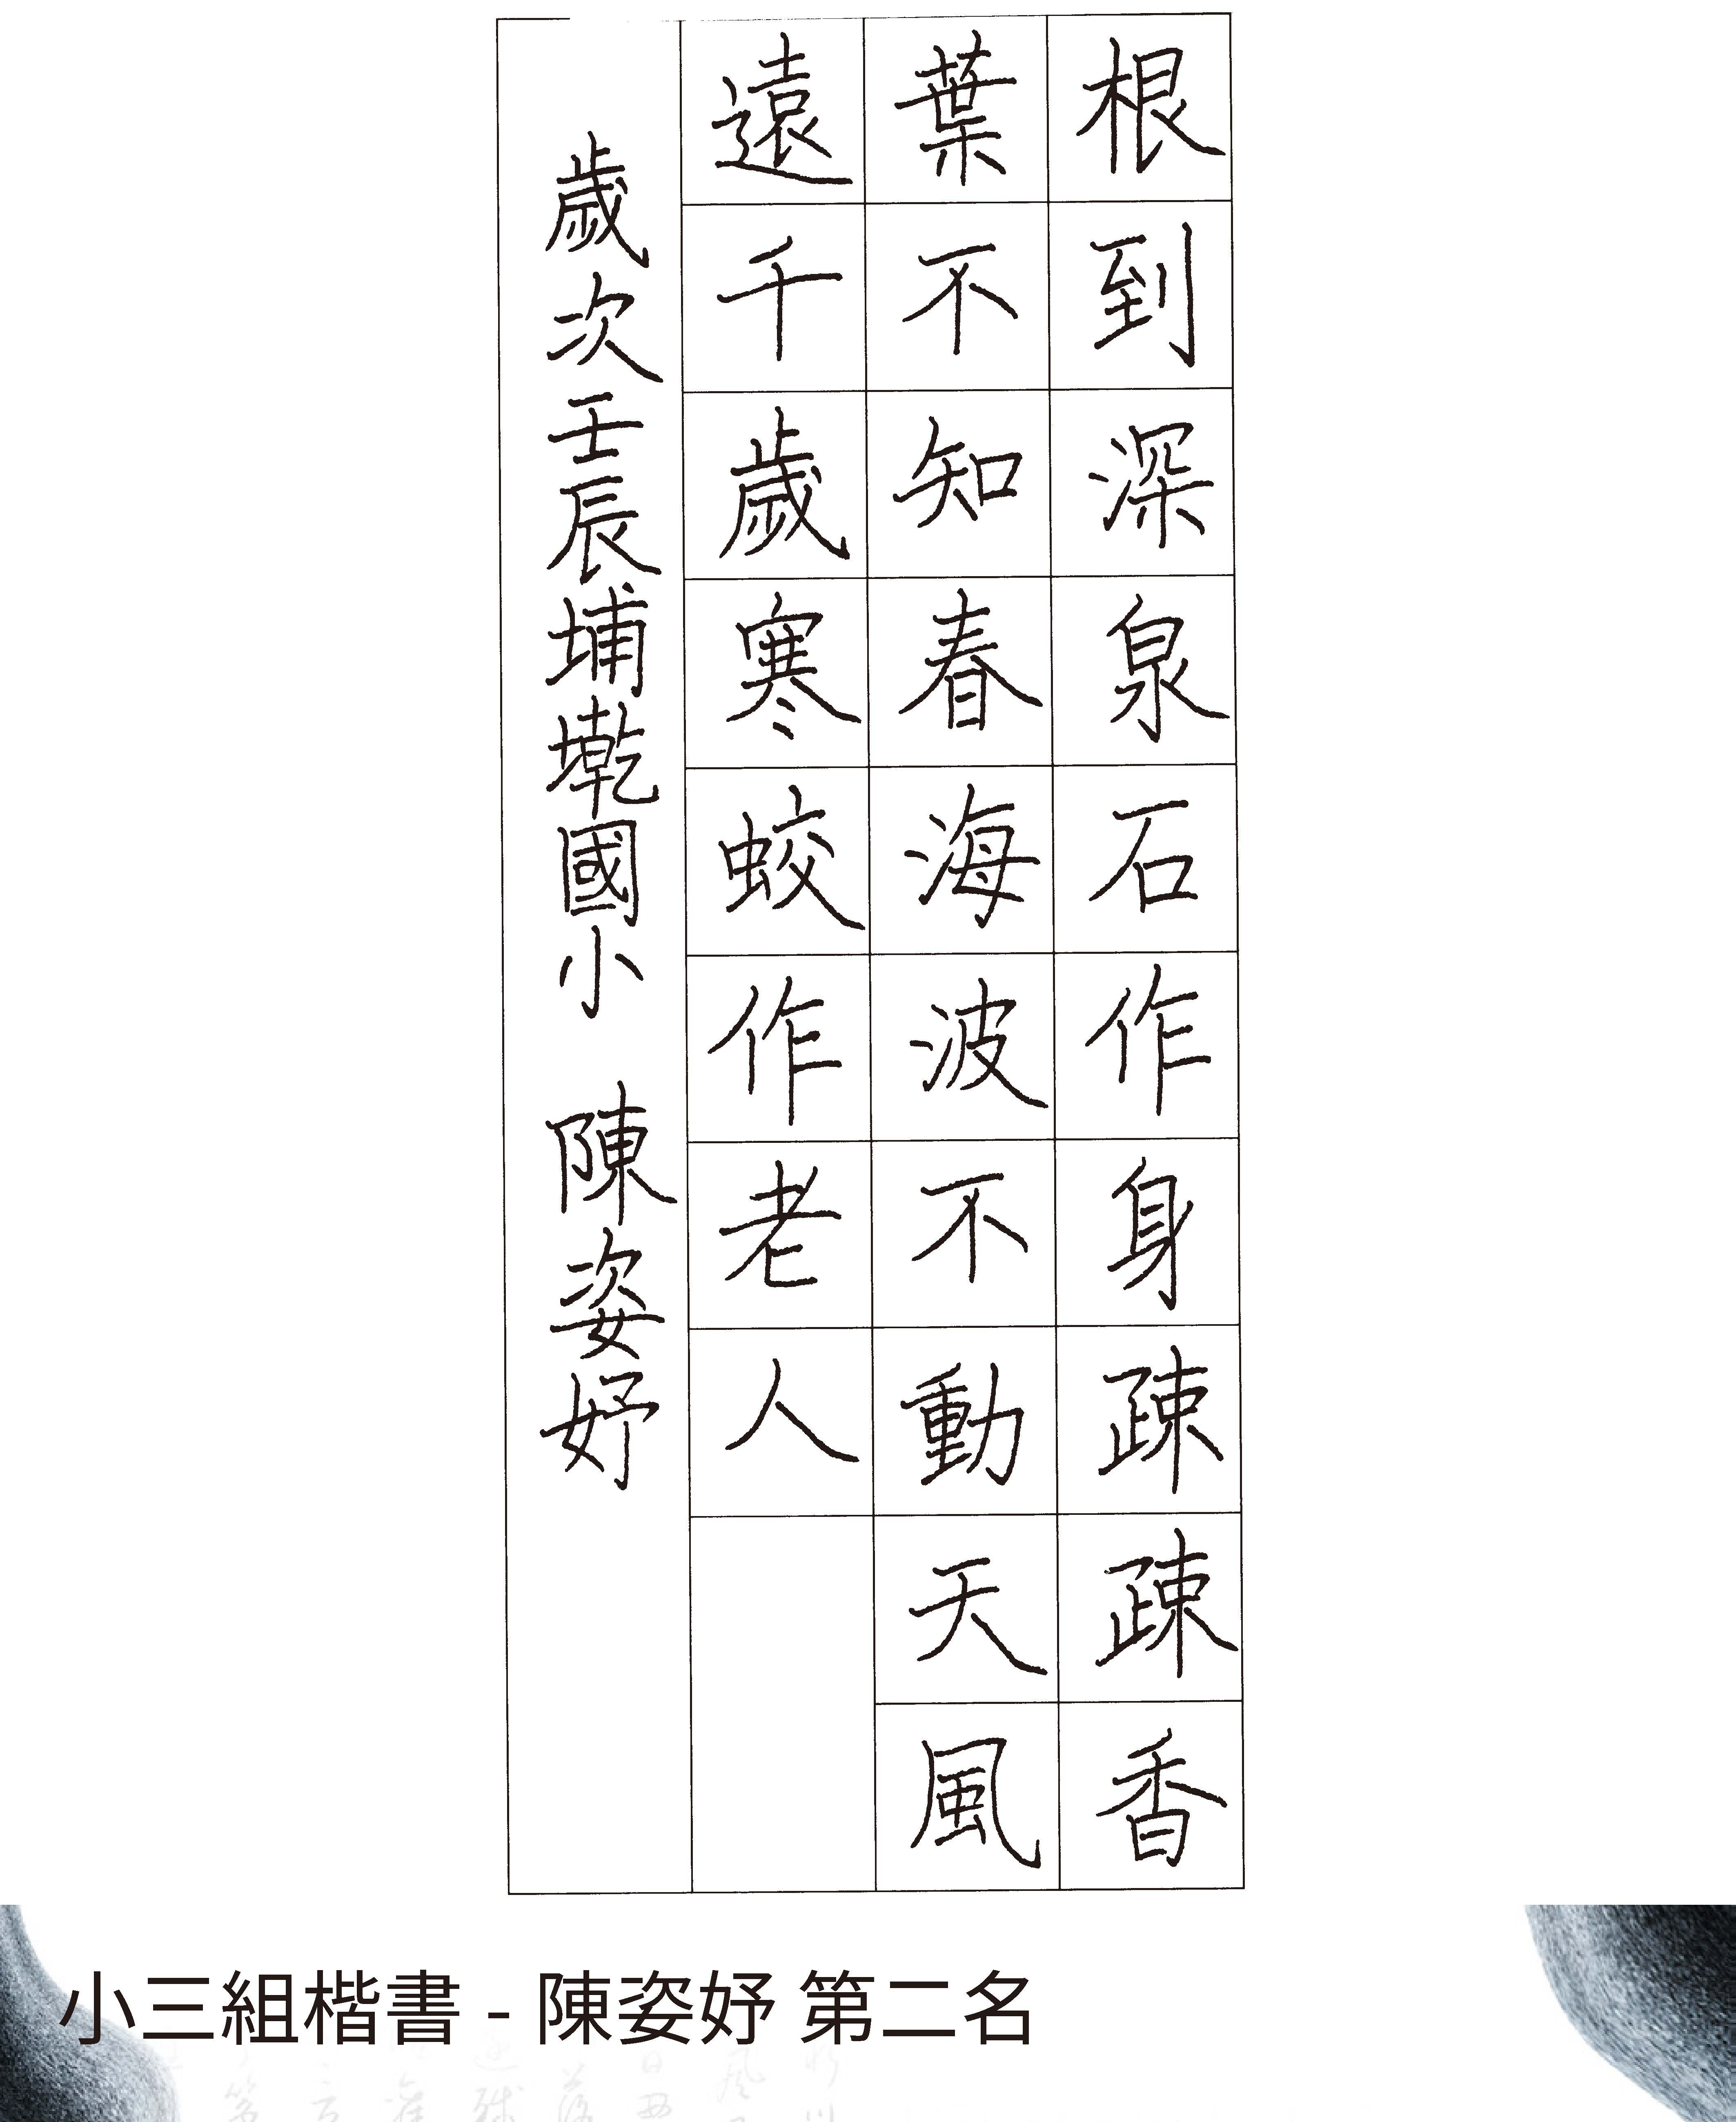 根到深泉石作身疎疎香
葉不知春海波不動天風
遠千歲寒蛟作老人
歲次壬辰埔墘國小 陳姿妤
小三組楷書 - 陳姿妤 第二名